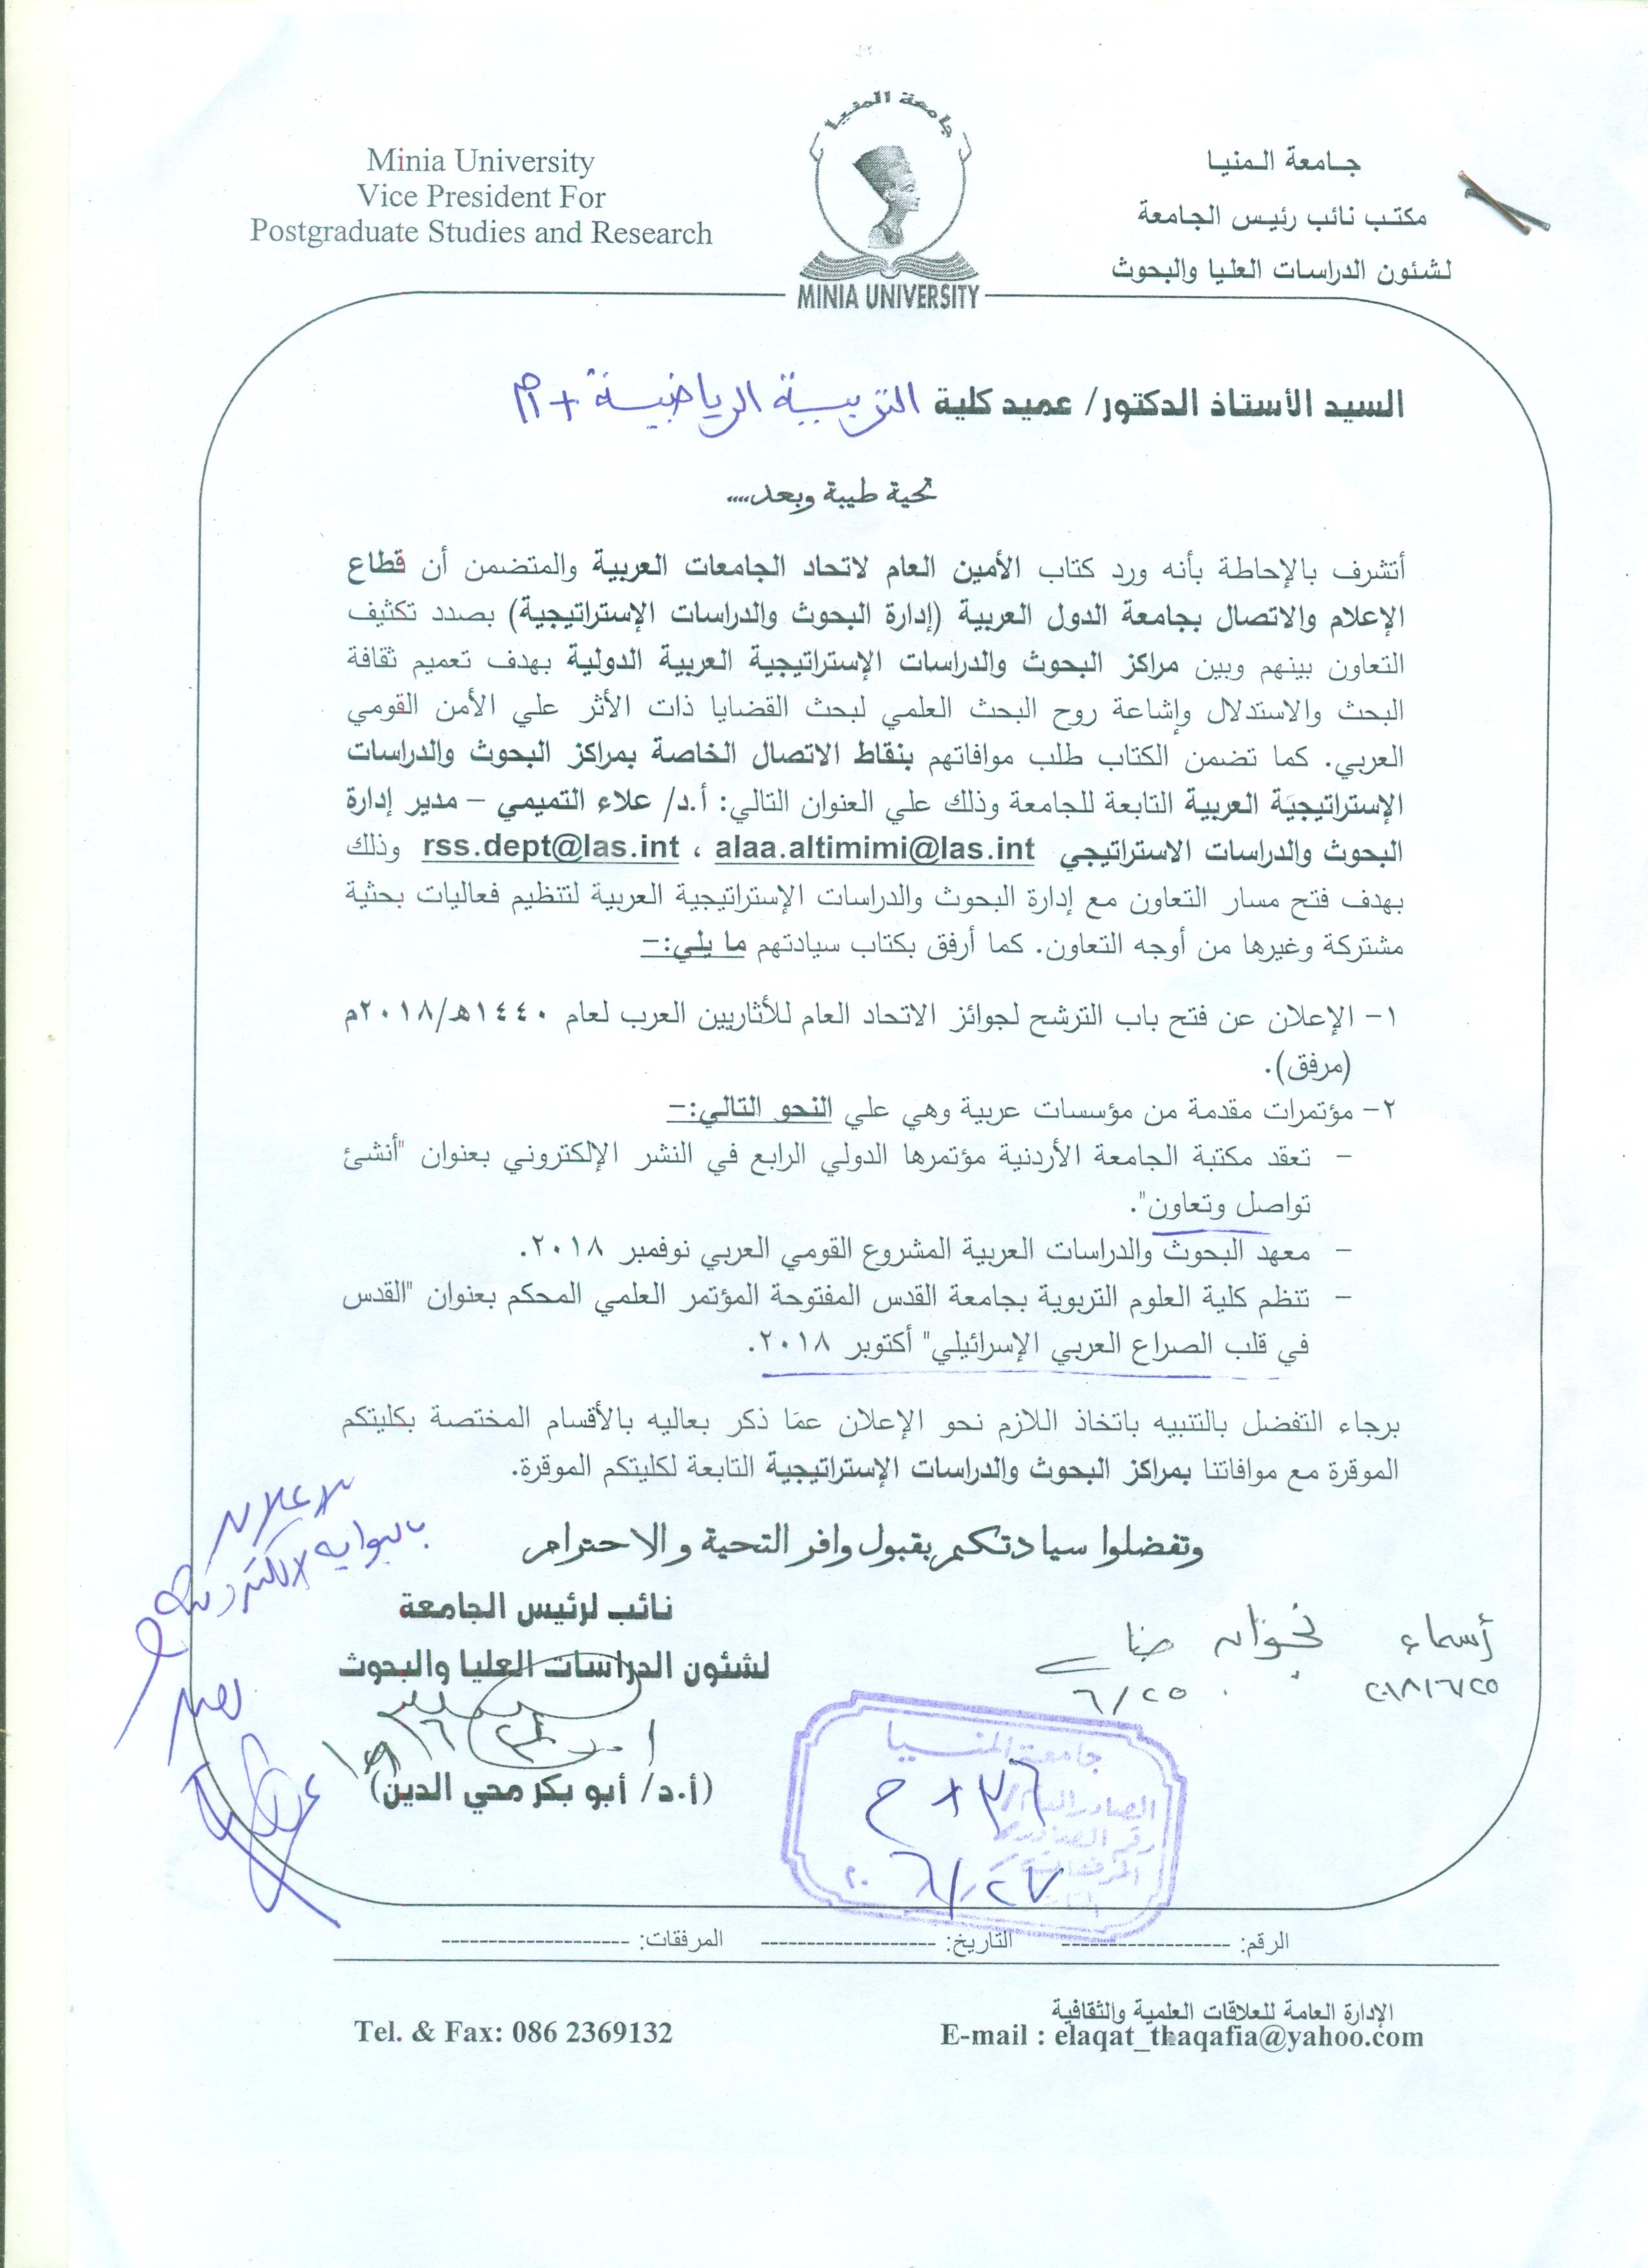 Minia University
Vice President For
Postgraduate Studies and Research
جامعة المنيا
MINIA UNIVERSITY
جـامعة الـمنيـا
مكتـب نائب رئيـس الجـامعة
لـشئون الدراسـات العلـيا والبحوث
السيد الأستاذ الدكتور/ عميد كلية التربية الرياضية
تحية طيبة وبعد....
أتشرف بالإحاطة بأنه ورد كتاب الأمين العام لاتحاد الجامعات العربية والمتضمن أن قطاع
الإعلام والاتصال بجامعة الدول العربية (إدارة البحوث والدراسات الإستراتيجية) بصدد تكثيف
التعاون بينهم وبين مراكز البحوث والدراسات الإستراتيجية العربية الدولية بهدف تعميم ثقافة
البحث والاستدلال وإشاعة روح البحث العلمي لبحث القضايا ذات الأثر علي الأمن القومي
العربي. كما تضمن الكتاب طلب موافاتهم بنقاط الاتصال الخاصة بمراكز البحوث والدراسات
الإستراتيجية العربية التابعة للجامعة وذلك علي العنوان التالي: أ.د/ علاء التميمي – مدير إدارة
البحوث والدراسات الاستراتيجي alaa.altimimi@las.int ، rss.dept@las.int وذلك
بهدف فتح مسار التعاون مع إدارة البحوث والدراسات الإستراتيجية العربية لتنظيم فعاليات بحثية
مشتركة وغيرها من أوجه التعاون. كما أرفق بكتاب سيادتهم ما يلي:–
١- الإعلان عن فتح باب الترشح لجوائز الاتحاد العام للأثاريين العرب لعام ١٤٤٠هـ/٢٠١٨م
(مرفق).
٢- مؤتمرات مقدمة من مؤسسات عربية وهي علي النحو التالي:–
– تعقد مكتبة الجامعة الأردنية مؤتمرها الدولي الرابع في النشر الإلكتروني بعنوان "أنشئ
تواصل وتعاون".
– معهد البحوث والدراسات العربية المشروع القومي العربي نوفمبر ٢٠١٨.
– تنظم كلية العلوم التربوية بجامعة القدس المفتوحة المؤتمر العلمي المحكم بعنوان "القدس
في قلب الصراع العربي الإسرائيلي" أكتوبر ٢٠١٨.
برجاء التفضل بالتنبيه باتخاذ اللازم نحو الإعلان عمّا ذكر بعاليه بالأقسام المختصة بكليتكم
الموقرة مع موافاتنا بمراكز البحوث والدراسات الإستراتيجية التابعة لكليتكم الموقرة.
وتفضلوا سيادتكم بقبول وافر التحية والاحترام
للاعلان
بالبوابه الالكترونية
نائب لرئيس الجامعة
لشئون الدراسات العليا والبحوث
(أ.د/ أبو بكر محي الدين)
أسماء
٢٠١٨/٦/٢٥
٦/٢٥
جامعة المنيا
٦/٢٧
الرقم: ------------------ التاريخ: ------------------ المرفقات: --------------------
الإدارة العامة للعلاقات العلمية والثقافية
E-mail : elaqat_thaqafia@yahoo.com
Tel. & Fax: 086 2369132